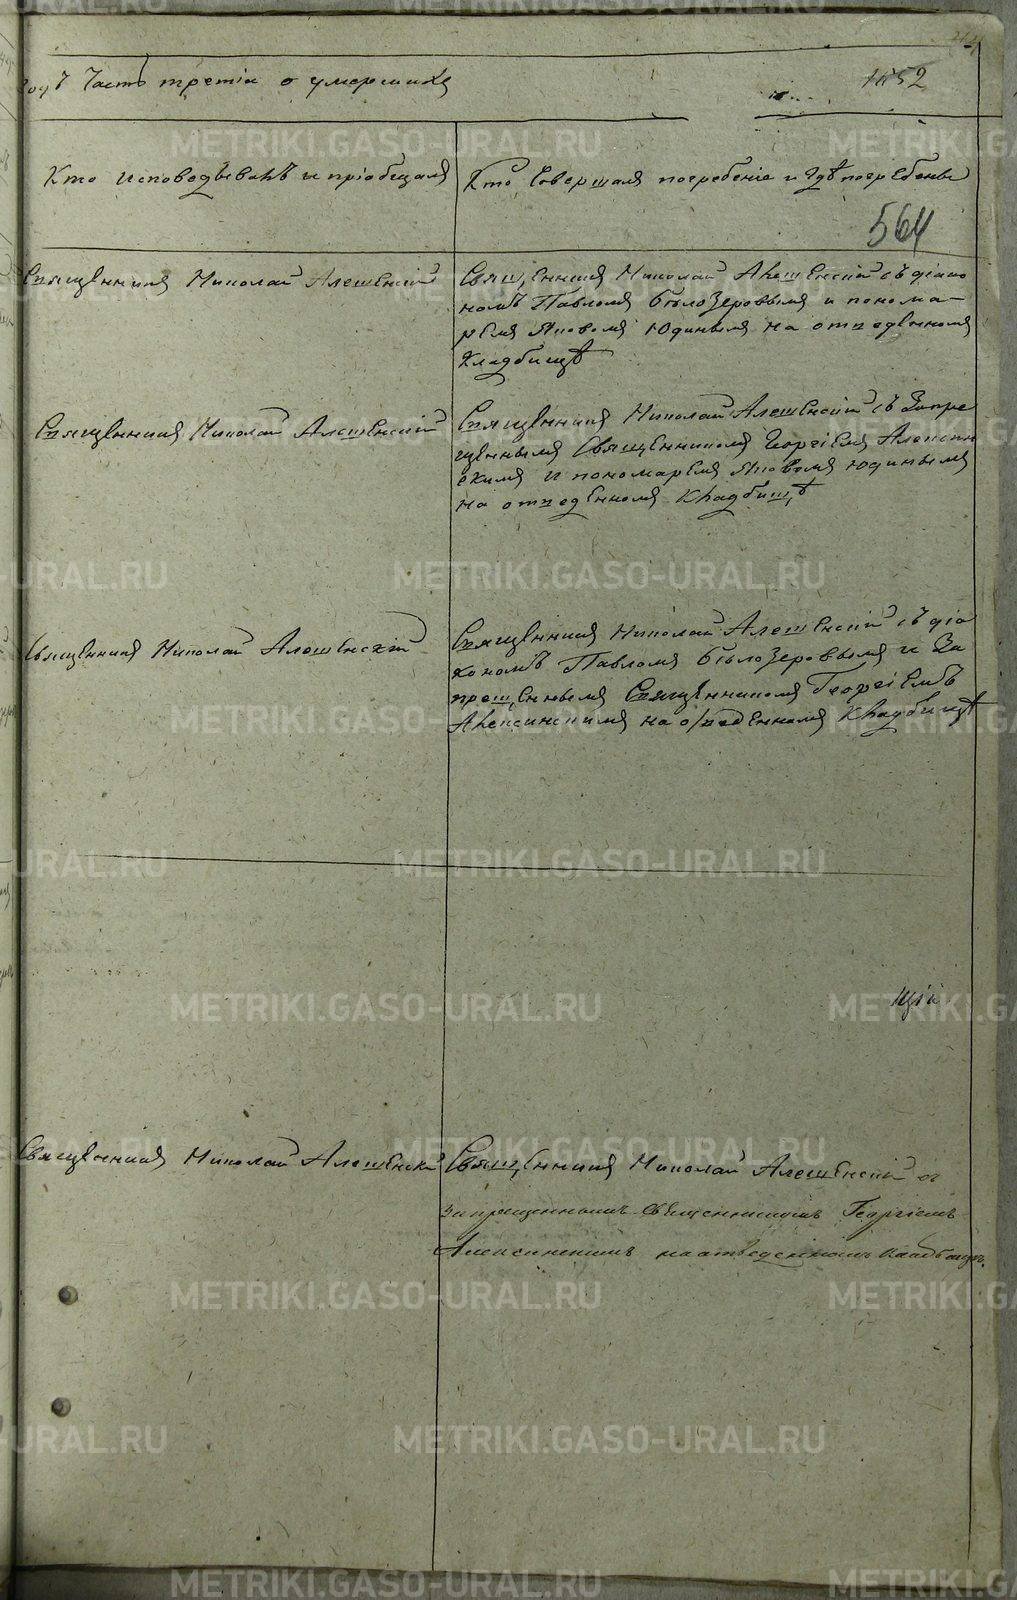 годъ Часть третіа о умершихъ
1152
Кто исповодывалъ и пріобщалъ
Кто Совершалъ погребеніе и Гдѣ погребены
564
Священникъ Николай Алешенскій
Священникъ Николай Алешенскій съ діако
номъ Павломъ Бѣлозеровымъ и понома-
ремъ Яковомъ Юдинымъ на отведенномъ
Кладбищѣ
Священникъ Николай Алешенскій
Священникъ Николай Алешенскій съ Запре
щеннымъ Священникомъ Георгіемъ Алексин
скимъ и пономаремъ Яковомъ Юдинымъ
на отведенномъ Кладбищѣ
Священникъ Николай Алешенскій
Священникъ Николай Алешенскій съ діа
кономъ Павломъ Бѣлозеровымъ и За
прещеннымъ Священникомъ Георгіемъ
Алексинскимъ на отведенномъ Кладбищѣ
щій
Священникъ Николай Алешенскій
Священникъ Николай Алешенскій съ
запрещеннымъ Священникомъ Георгіемъ
Алексинскимъ на отведенномъ Кладбищѣ.
METRIKI.GASO-URAL.RU